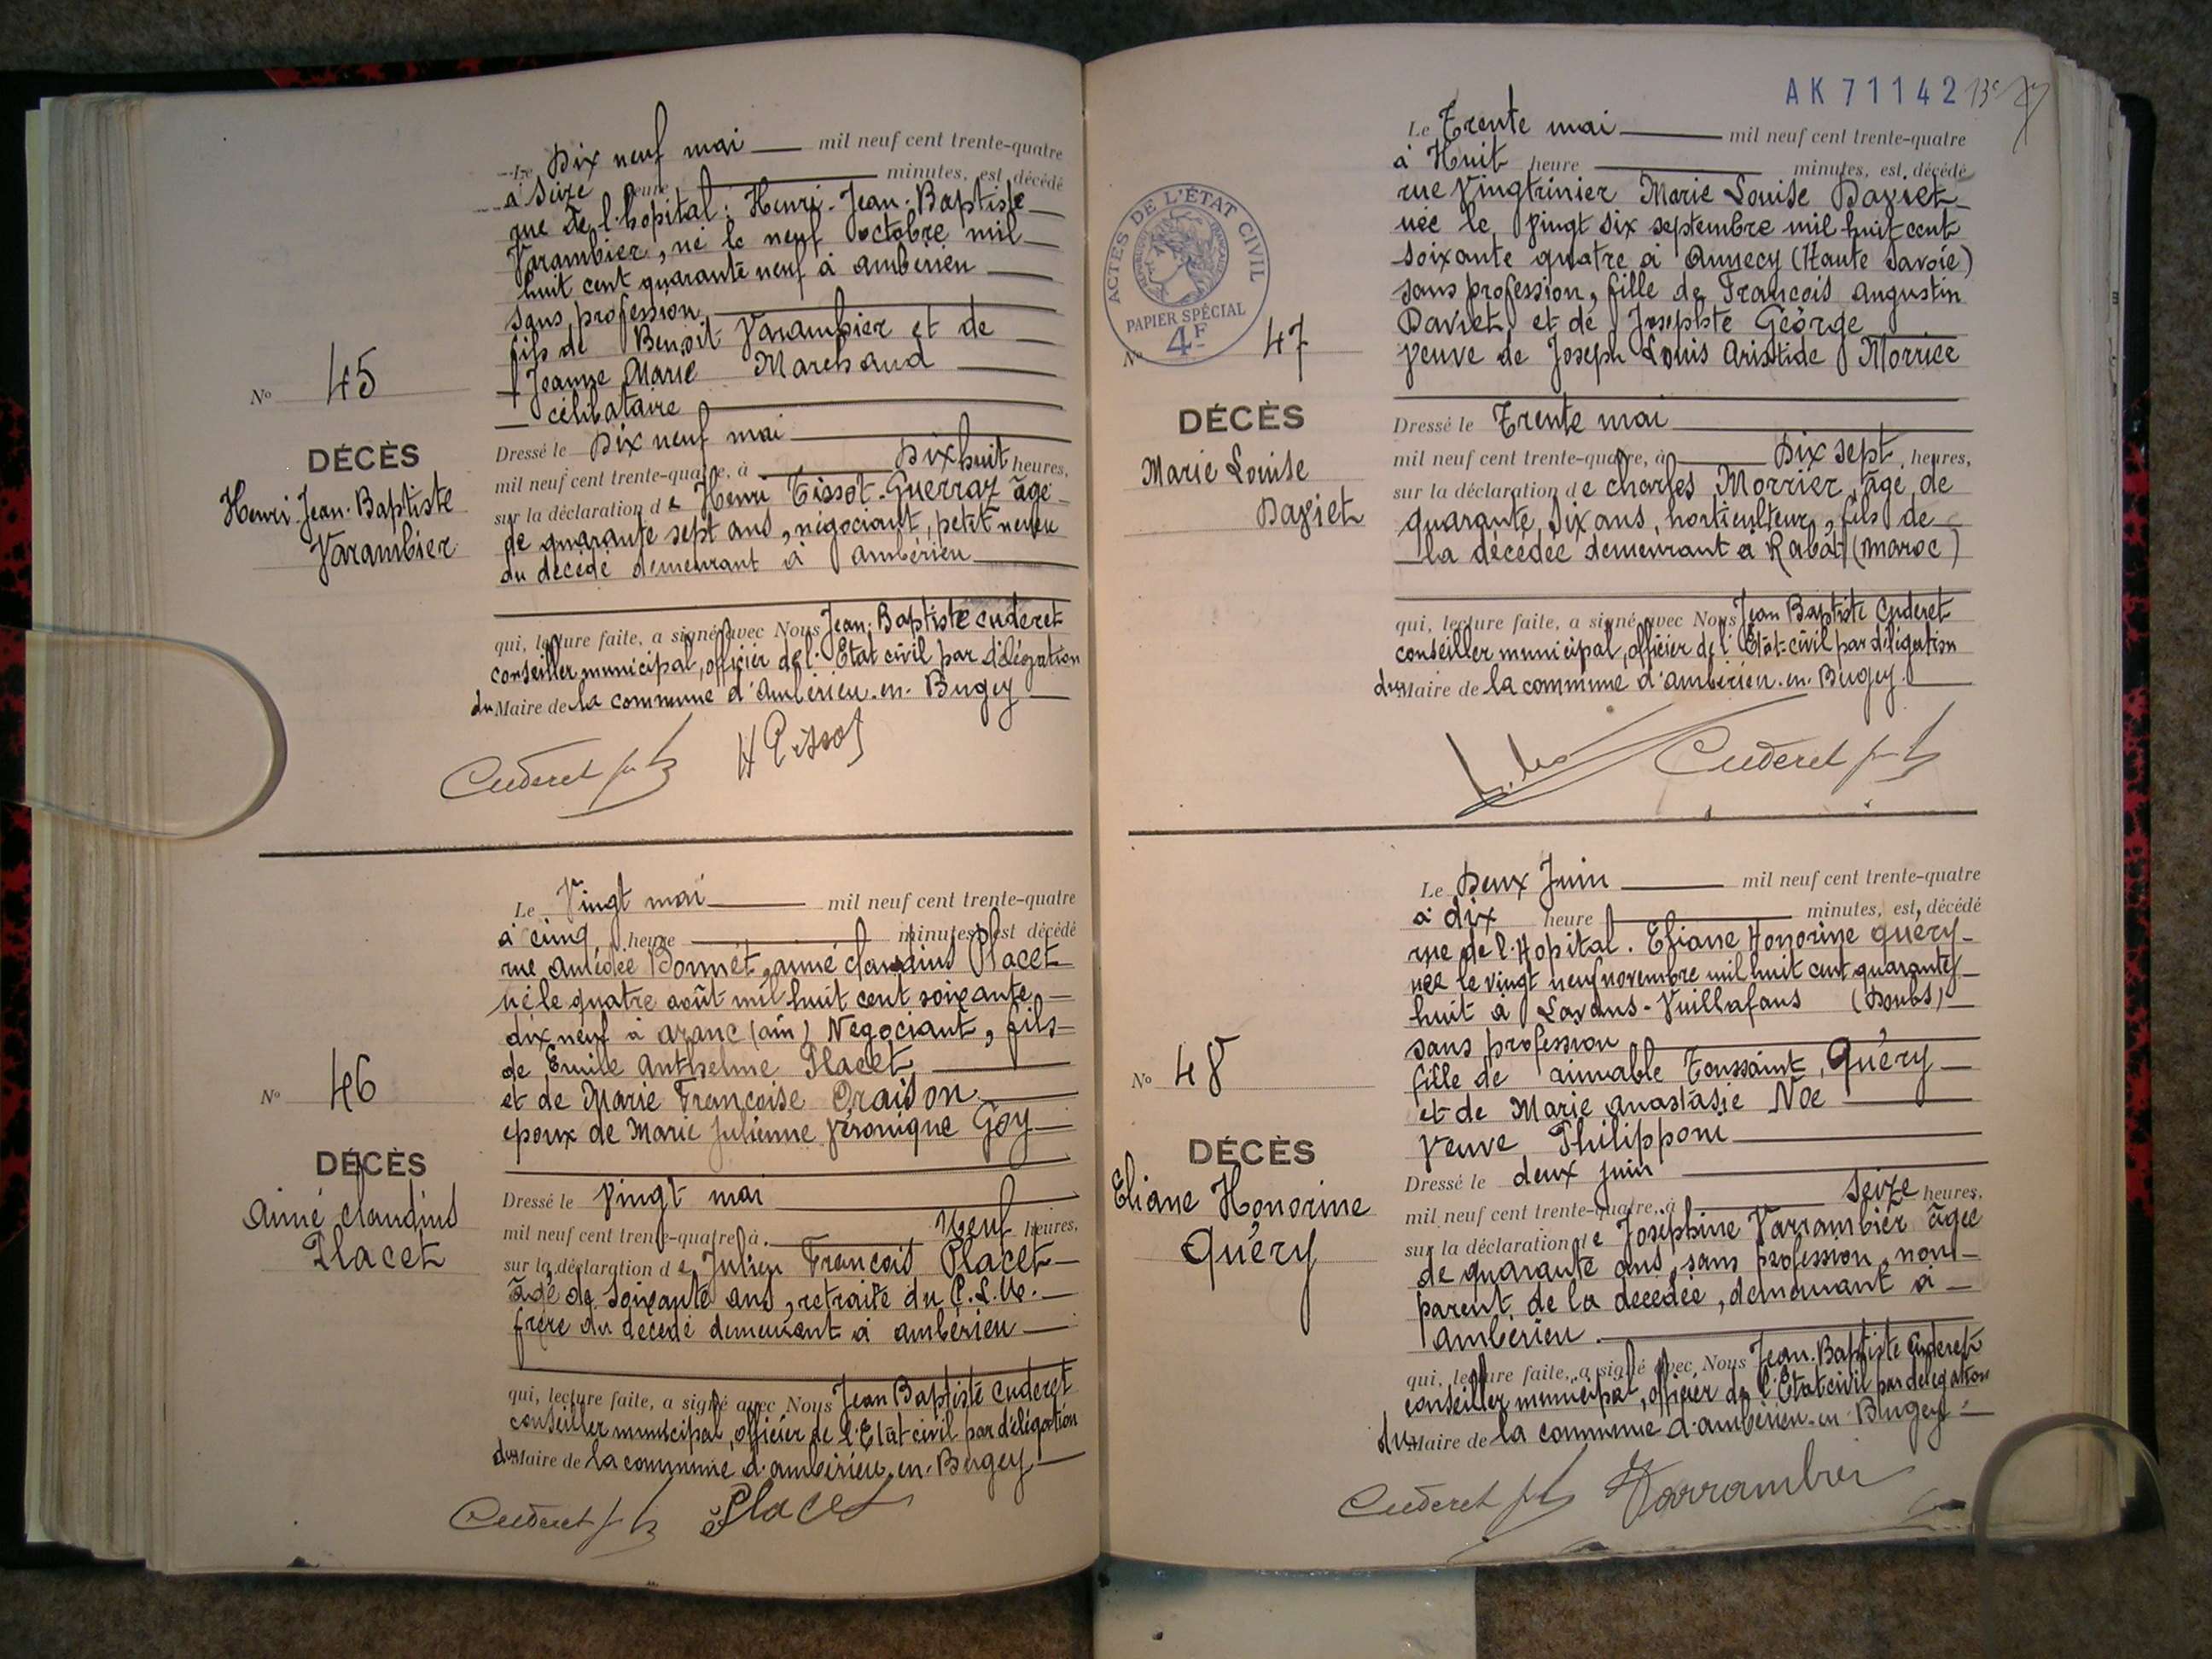 Le Dix neuf mai mil neuf cent trente-quatre
à Seize heure minutes, est décédé
rue de l'hopital : Henri-Jean-Baptiste
Varambier, né le neuf octobre mil
huit cent quarante neuf à ambérieu
sans profession
fils de Benoit Varambier et de
Jeanne Marie Marchand
célibataire
No 45
DÉCÈS
Henri-Jean-Baptiste
Varambier
Dressé le Dix neuf mai
mil neuf cent trente-quatre, à Dix huit heures,
sur la déclaration de Henri Tissot-Guerraz âgé
de quarante sept ans, négociant, petit neveu
du décédé demeurant à ambérieu
qui, lecture faite, a signé avec Nous Jean-Baptiste Cuderet
conseiller municipal, officier de l'Etat civil par délégation
du Maire de la commune d'ambérieu-en-Bugey
Cuderet H Tissot
Le Vingt mai mil neuf cent trente-quatre
à cinq heure minutes, est décédé
rue amédée Bonnet, aimé claudius Placet
né le quatre août mil huit cent soixante
dix neuf à aranc (ain) Négociant, fils
de Emile Anthelme Placet
et de Marie Françoise Oraison
époux de Marie Julienne Véronique Goy
No 46
DÉCÈS
Aimé claudius
Placet
Dressé le Vingt mai
mil neuf cent trente-quatre, à Neuf heures,
sur la déclaration de Julien François Placet
âgé de soixante ans, retraité du P.L.M.
frère du décédé demeurant à ambérieu
qui, lecture faite, a signé avec Nous Jean Baptiste Cuderet
conseiller municipal, officier de l'Etat civil par délégation
du Maire de la commune d'ambérieu-en-Bugey
Cuderet Placet
AK 71142
Le Trente mai mil neuf cent trente-quatre
à Huit heure minutes, est décédé
rue Vingtrinier Marie Louise Daviet
née le Vingt six septembre mil huit cent
soixante quatre à Annecy (Haute Savoie)
sans profession, fille de François augustin
Daviet et de Josephte George
Veuve de Joseph Louis Aristide Morrier
ACTES DE L'ÉTAT CIVIL
PAPIER SPÉCIAL
4F
No 47
DÉCÈS
Marie Louise
Daviet
Dressé le Trente mai
mil neuf cent trente-quatre, à Dix sept heures,
sur la déclaration de charles Morrier, âgé de
quarante six ans, horticulteur, fils de
la décédée demeurant à Rabat (maroc)
qui, lecture faite, a signé avec Nous Jean Baptiste Cuderet
conseiller municipal, officier de l'Etat-civil par délégation
du Maire de la commune d'ambérieu-en-Bugey
Cuderet
Le Deux Juin mil neuf cent trente-quatre
à dix heure minutes, est décédé
rue de l'Hopital. Eliane Honorine Quéry
née le vingt neuf novembre mil huit cent quarante
huit à Lavans-Vuillafans (Doubs)
sans profession
fille de aimable Toussaint, Quéry
et de Marie anastasie Noe
Veuve Philippone
No 48
DÉCÈS
Eliane Honorine
Quéry
Dressé le deux juin
mil neuf cent trente-quatre, à Seize heures,
sur la déclaration de Joséphine Varrambier âgée
de quarante ans, sans profession, non
parent de la décédée, demeurant à
ambérieu.
qui, lecture faite, a signé avec Nous Jean-Baptiste Cuderet
conseiller municipal, officier de l'Etat civil par délégation
du Maire de la commune d'ambérieu-en-Bugey
Cuderet Varrambier